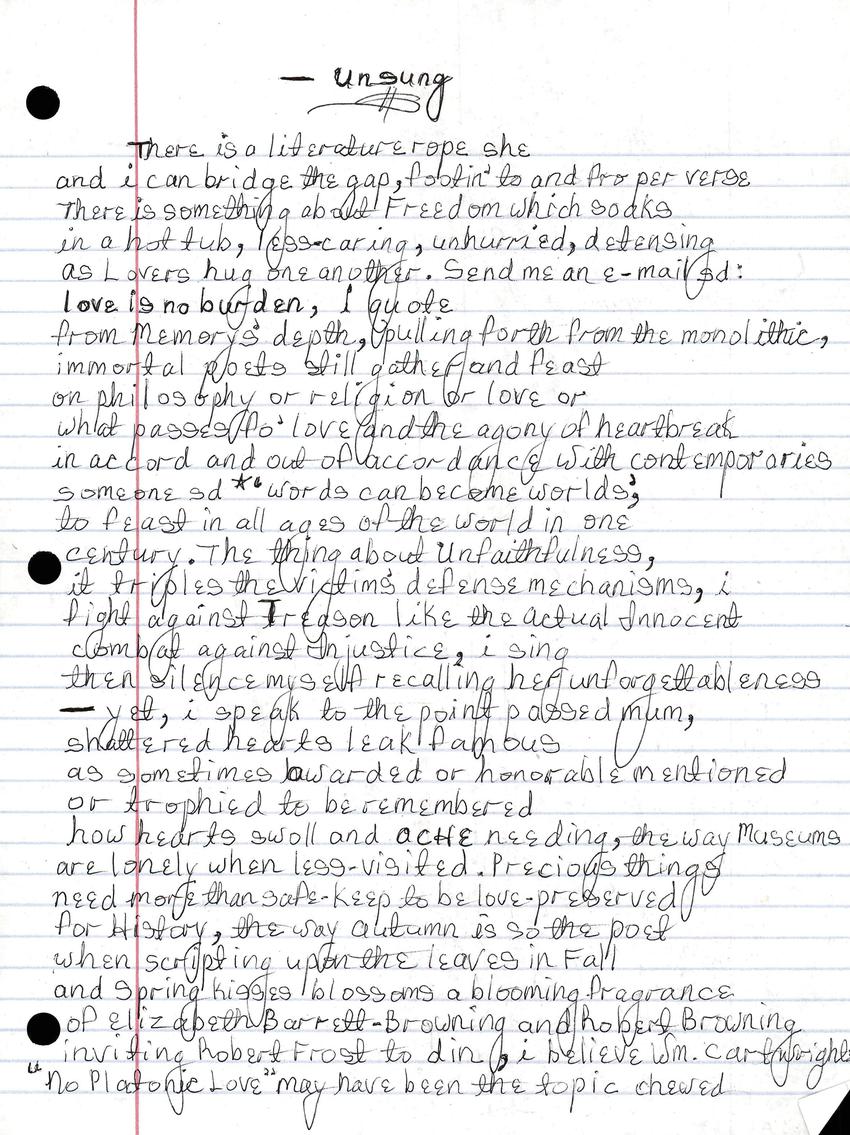 — Unsung
There is a literature rope she
and i can bridge the gap, footin' to and fro per verse
There is something about Freedom which soaks
in a hot tub, less-caring, unhurried, detensing
as Lovers hug one another. Send me an e-mail sd:
love is no burden, i quote
from Memory's depth, pulling forth from the monolithic,
immortal poets still gather and feast
on philosophy or religion or love or
what passes fo' love and the agony of heartbreak
in accord and out of accordance with contemporaries
someone sd *"words can become worlds;
to feast in all ages of the world in one
century. The thing about Unfaithfulness,
it triples the victims' defense mechanisms, i
fight against Treason like the actual Innocent
combat against Injustice, i sing
then silence myself recalling her unforgettableness
— yet, i speak to the point passed mum,
shattered hearts leak famous
as sometimes awarded or honorable mentioned
or trophied to be remembered
how hearts swoll and ACHE needing, the way Museums
are lonely when less-visited. Precious things
need more than safe-keep to be love-preserved
for History, the way autumn is so the poet
when scripting upon the leaves in Fall
and Spring kisses blossoms a blooming fragrance
of Elizabeth Barrett-Browning and Robert Browning
inviting Robert Frost to din, i believe Wm. Cartwright
"No Platonic Love" may have been the topic chewed